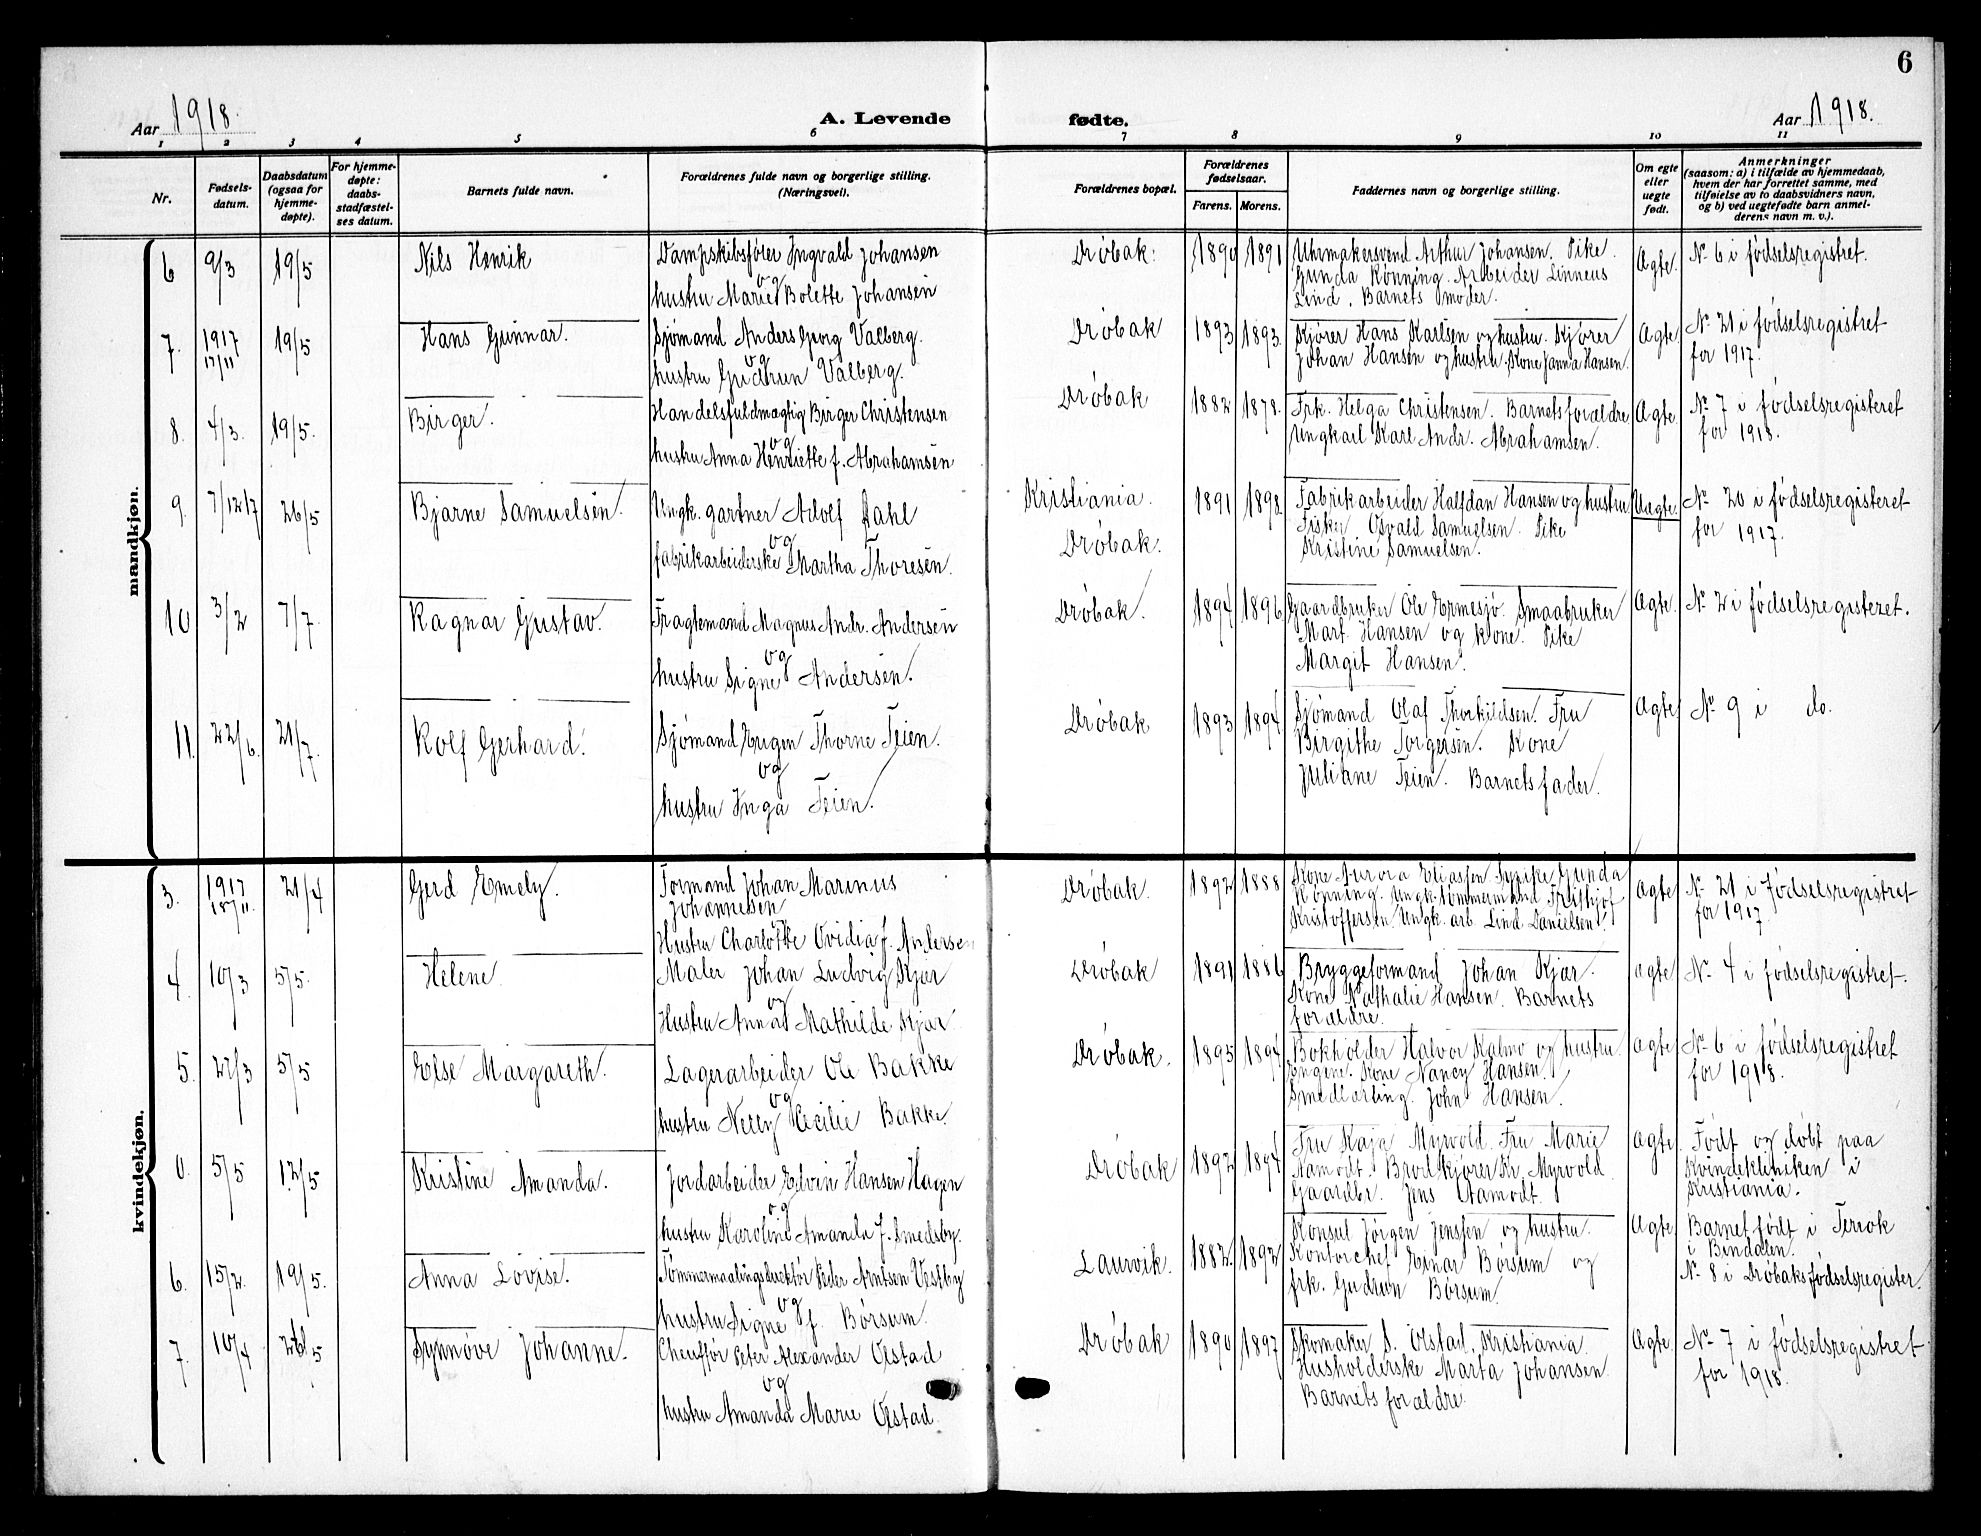 6
Aar 1918.
A. Levende fødte.
Aar 1918.
1 2 3 4 5 6 7 8 9 10 11
Nr.
Fødsels-
datum.
Daabsdatum
(ogsaa for
hjemme-
døpte).
For hjemme-
døpte:
daabs-
stadfæstel-
ses datum.
Barnets fulde navn.
Forældrenes fulde navn og borgerlige stilling.
(Næringsvei).
Forældrenes bopæl.
Forældrenes
fødselsaar.
Farens. Morens.
Faddernes navn og borgerlige stilling.
Om egte
eller
uegte
født.
Anmerkninger
(saasom: a) i tilfælde av hjemmedaab,
hvem der har forrettet samme, med
tilføielse av to daabsvidners navn,
og b) ved uegtefødte barn anmel-
derens navn m. v.).
mandkjøn.
6 9/3 19/5
Nils Henrik
Dampskibsfører Ingvald Johansen
og
hustru Marie Bolette Johansen
Drøbak.
1890 1891
Uhrmakersvend Arthur Johansen. Pike
Gunda Rønning. Arbeider Linneus
Lind. Barnets moder.
Ægte.
No 6 i fødselsregistret.
7. 1917 17/11 19/5
Hans Gunnar.
Sjømand Anders Georg Valberg.
og
hustru Gudrun Valberg.
Drøbak
1893 1893.
Kjører Hans Karlsen og hustru. Kjører
Johan Hansen og hustru. Kone Janna Hansen.
Ægte
No 21 i fødselsregistret
for 1917.
8. 4/3. 19/5.
Birger.
Handelsfuldmægtig Birger Christensen
og
hustru Anna Henriette f. Abrahamsen
Drøbak
1882 1878.
Frk. Helga Christensen. Barnets forældre
Ungkarl Karl Andr. Abrahamsen.
Ægte.
No 7 i fødselsregisteret
for 1918.
9. 7/12 17 26/5
Bjarne Samuelsen.
Ungk. gartner Adolf Dahl
og
fabrikarbeiderske Martha Thoresen.
Kristiania.
Drøbak.
1891 1898.
Fabrikarbeider Halfdan Hansen og hustru
Fisker Osvald Samuelsen. Pike
Kristine Samuelsen.
Uægte.
No 20 i fødselsregisteret
for 1917.
10 3/2 7/7.
Ragnar Gustav.
Fragtemand Magnus Andr. Andersen
og
hustru Signe Andersen.
Drøbak.
1894 1896
Gaardbruker Ole Ermesjø. Smaabruker
Mart. Hansen og kone. Pike
Margit Hansen.
Ægte
No 2 i fødselsregisteret.
11. 22/6. 21/7.
Rolf Gerhard.
Sjømand Eugen Thorne Teien.
og
hustru Inga Teien.
Drøbak
1893 1894
Sjømand Olaf Thorkildsen. Fru
Birgithe Torgersen. Kone
Juliane Teien. Barnets fader.
Ægte
No 9 i do.
kvindekjøn.
3. 1917 21/4
Gerd Emely.
Formand Johan Marinus
Johannesen
og
Hustru Charlotte Ovidia f. Andersen
Drøbak.
1892 1888
Kone Aurora Eliassen Gunda
Rønning. Ungk. tømmermand Frithjof
Kristoffersen. Ungk. arb. Lind Danielsen.
Ægte
No 21 i fødselsregistret
for 1917.
4. 10/3 5/5.
Helene
Maler Johan Ludvig Kjær
og
Hustru Anna Mathilde Kjær
Drøbak
1891 1886
Bryggeformand Johan Kjær.
Kone Nathalie Hansen. Barnets
forældre.
Ægte
No 4 i fødselsregistret.
5. 22/3 5/5
Else Margareth.
Lagerarbeider Ole Bakke
og
hustru Nelly Cecilie Bakke.
Drøbak.
1895 1894
Bokholder Halvor Kalmo og hustru
Engene. Kone Nancy Hansen.
Smedlærling John Hansen.
Ægte
No 6 i fødselsregistret
for 1918.
0. 5/5 12/5
Kristine Amanda.
Jordarbeider Edvin Hansen Hagen
og
hustru Karoline Amanda f. Smedsby.
Drøbak
1892 1894
Fru Kaja Myrvold. Fru Marie
Aamodt. Brødkjører Kr. Myrvold.
Gaardbr. Jens Aamodt.
Ægte.
Født og døbt paa
Kvindekliniken i
Kristiania.
6. 15/2. 19/5.
Anna Lovise.
Tømmermaalingsdirektør Peder Arntsen Vestby
og
hustru Signe f. Børsum.
Laurvik.
1882. 1892
Konsul Jørgen Jenssen og hustru.
Kontorchef Einar Børsum og
frk. Gudrun Børsum.
Ægte
Barnet født i Teriok
i Bindalen.
No 8 i Drøbaks fødselsregister.
7. 10/4 26/5
Synnøve Johanne.
Chauffør Peter Alexander Ølstad
og
hustru Amanda Marie Ølstad.
Drøbak
1890 1897
Skomaker S. Ølstad, Kristiania.
Husholderske Marta Johansen
Barnets forældre.
Ægte.
No 7 i fødselsregistret
for 1918.